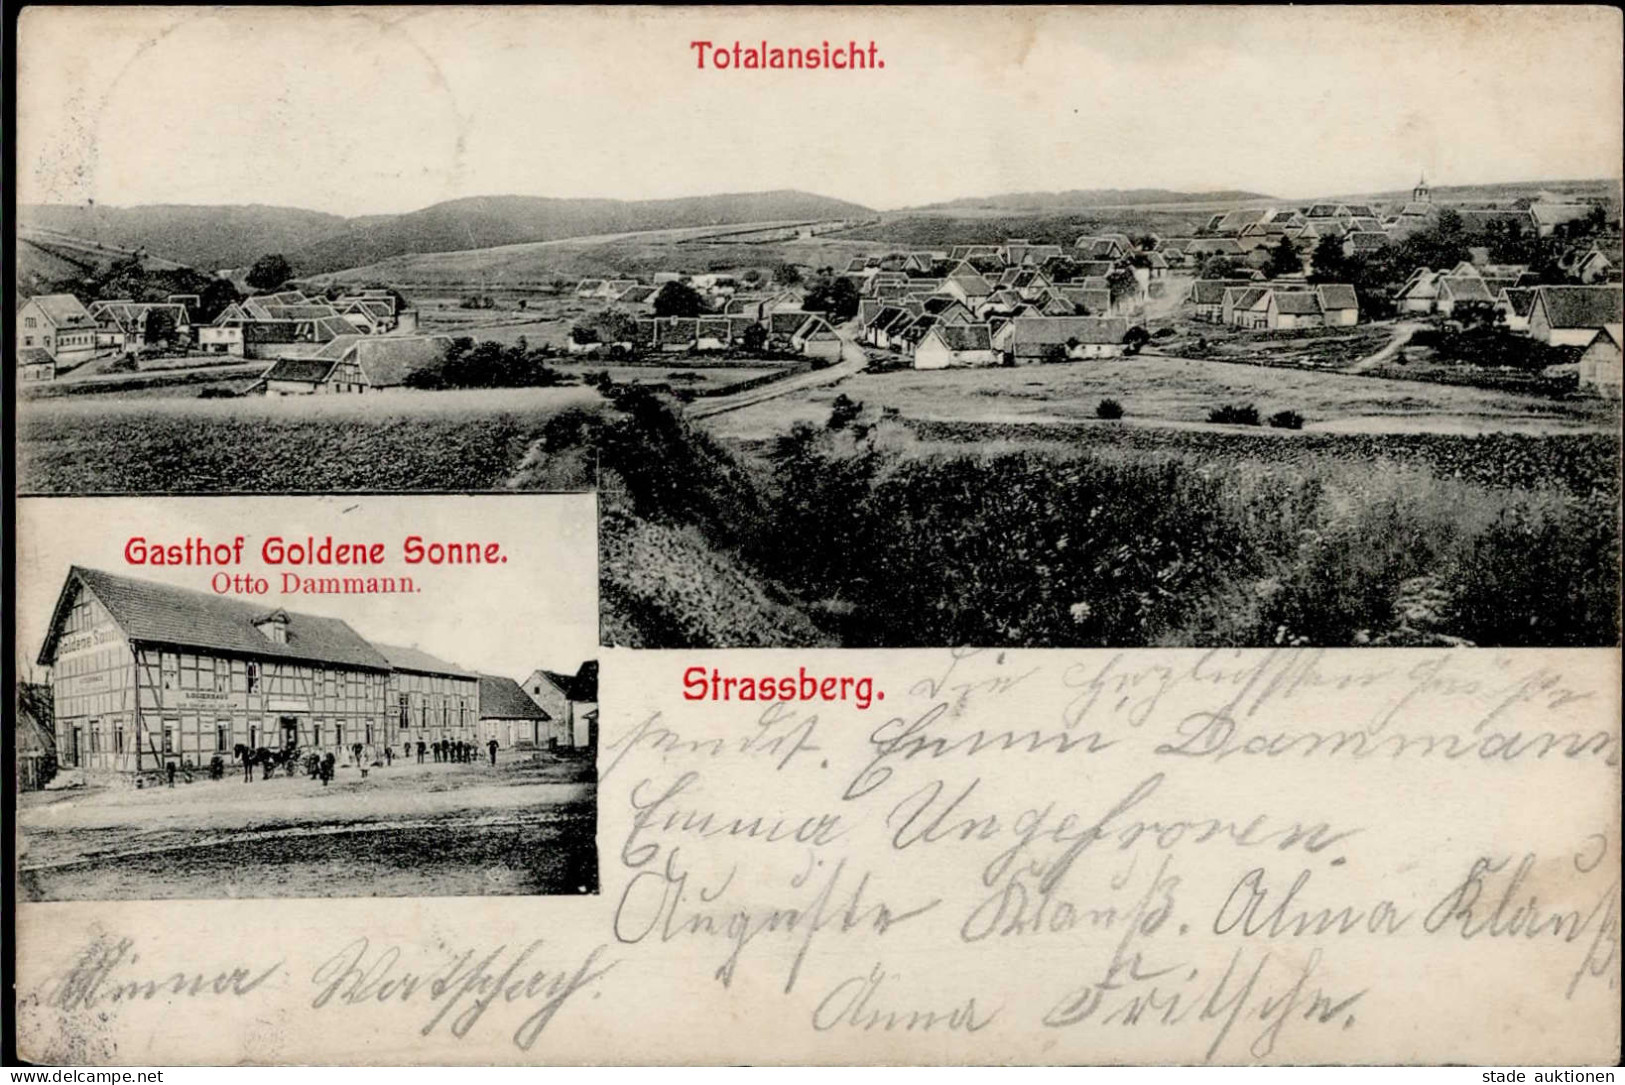 Totalansicht.
Gasthof Goldene Sonne.
Otto Dammann.
Goldene Sonne
LOGIERHAUS
Strassberg.
Die herzlichsten Grüße
sendet. Emmi Dammann
Emma Ungefroren.
Auguste Klauß. Alma Klauß
Minna Watschach.
Anna Fritsche.
stade auktionen